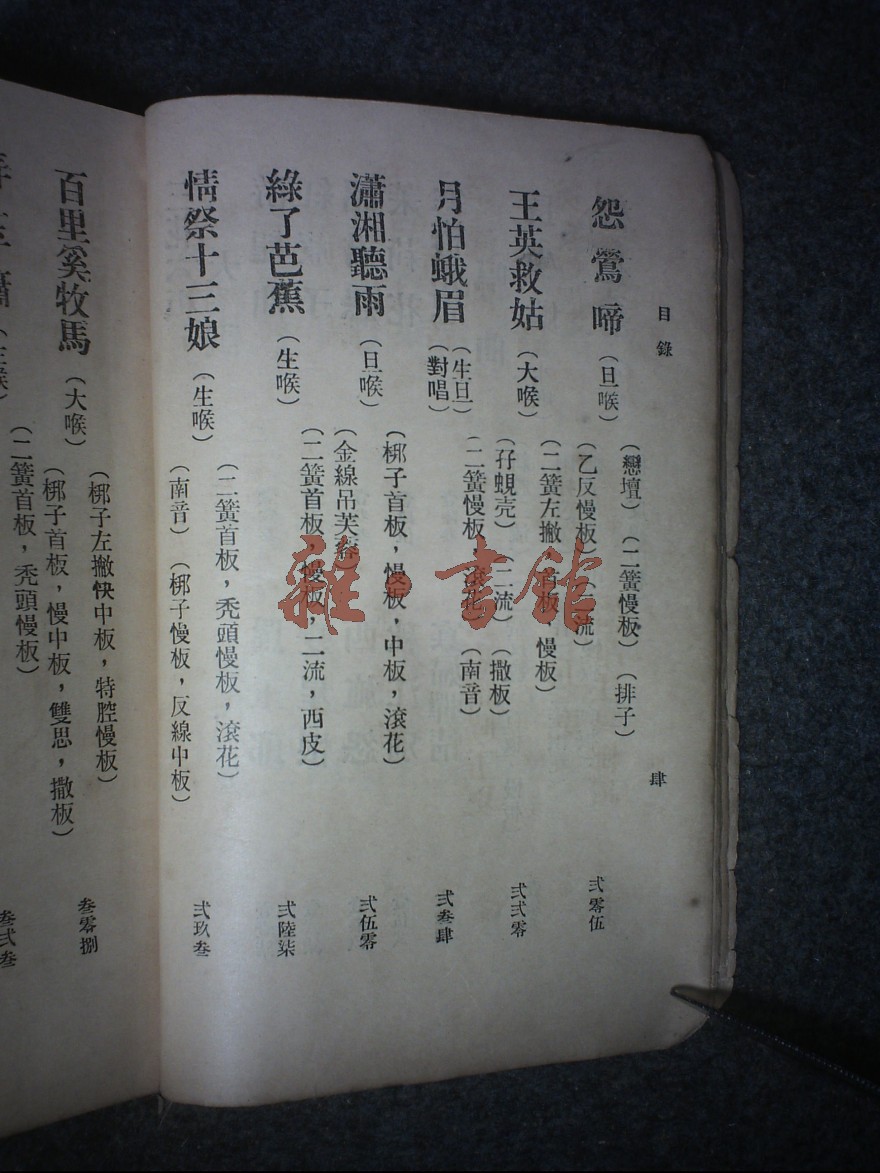 目錄
肆
怨鶯啼（旦喉）
（戀壇）（二簧慢板）（排子）
（乙反慢板）（二流）
弍零伍
王英救姑（大喉）
（二簧左撇首板 慢板）
（孖蜆壳）（二流）（撒板）
弍弍零
月怕蛾眉（生旦）（對唱）
（二簧慢板，滾花）（南音）
弍叁肆
瀟湘聽雨（旦喉）
（梆子首板，慢板，中板，滾花）
（金線吊芙蓉）
弍伍零
綠了芭蕉（生喉）
（二簧首板，慢板，二流，西皮）
弍陸柒
情祭十三娘（生喉）
（二簧首板，禿頭慢板，滾花）
（南音）（梆子慢板，反線中板）
弍玖叁
百里奚牧馬（大喉）
（梆子左撇快中板，特腔慢板）
（梆子首板，慢中板，雙思，撒板）
叁零捌
（二簧首板，禿頭慢板）
叁弍叁
雜·書館